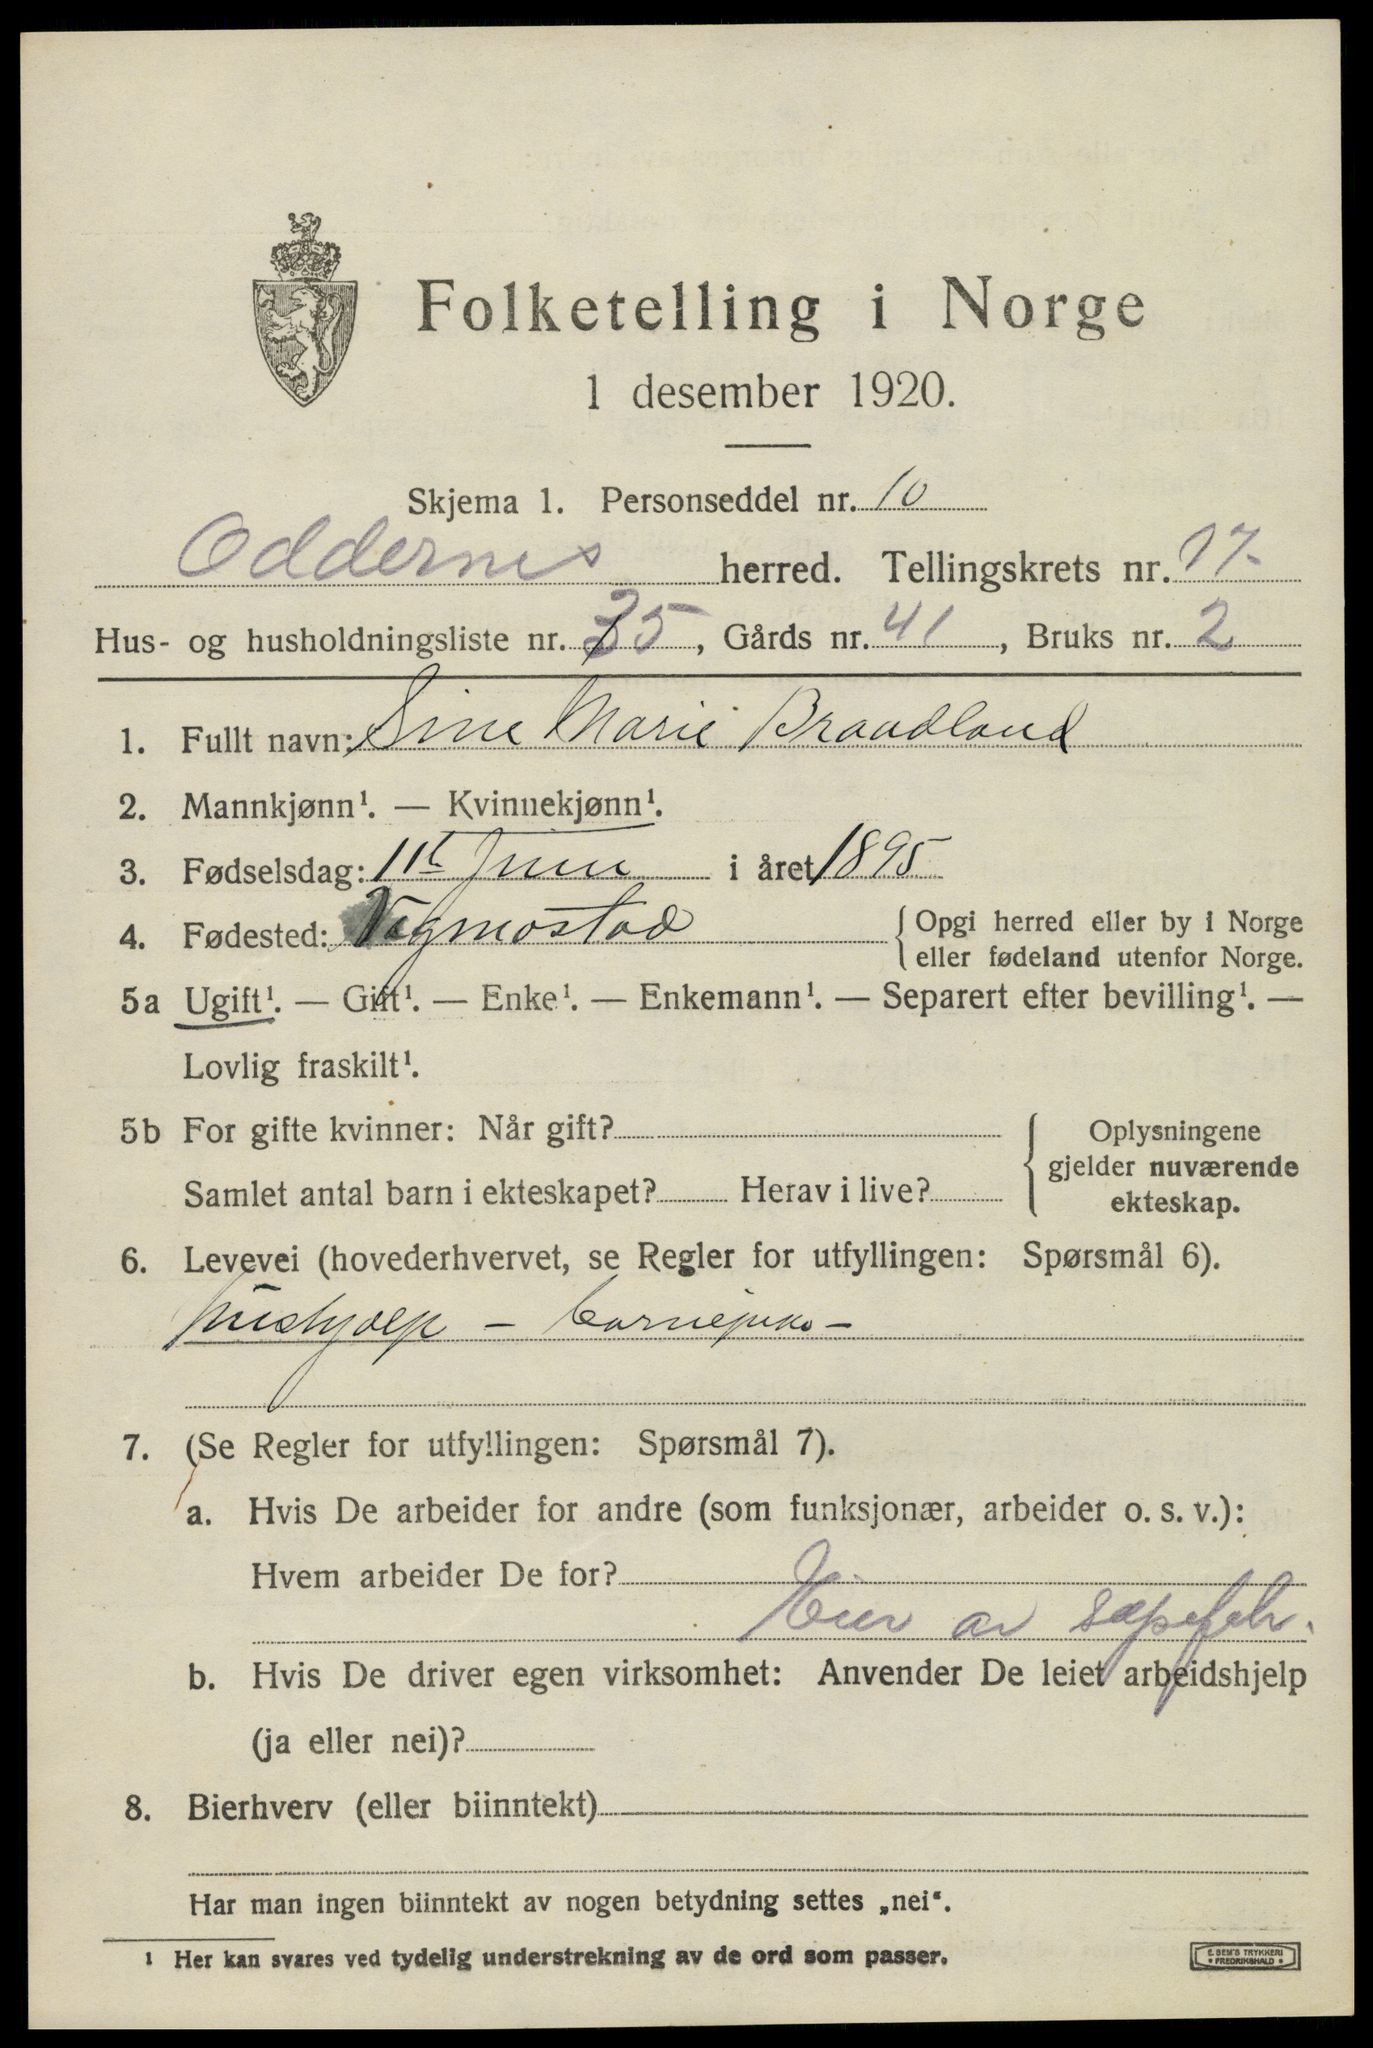 Folketelling i Norge
1 desember 1920.
Skjema 1. Personseddel nr. 10
Oddernes herred. Tellingskrets nr. 17-
Hus- og husholdningsliste nr. 25, Gårds nr. 41, Bruks nr. 2
1. Fullt navn: Sine Marie Braadland
2. Mannkjønn¹. — Kvinnekjønn¹.
3. Fødselsdag: 11t Juni i året 1895
4. Fødested: Vegmostad { Opgi herred eller by i Norge
eller fødeland utenfor Norge.
5a Ugift¹. — Gift¹. — Enke¹. — Enkemann¹. — Separert efter bevilling¹. —
Lovlig fraskilt¹.
5b For gifte kvinner: Når gift?
Samlet antal barn i ekteskapet? Herav i live? { Oplysningene
gjelder nuværende
ekteskap.
6. Levevei (hovederhvervet, se Regler for utfyllingen: Spørsmål 6).
Hushjælp — barnepike —
7. (Se Regler for utfyllingen: Spørsmål 7).
a. Hvis De arbeider for andre (som funksjonær, arbeider o. s. v.):
Hvem arbeider De for?
Eier av sæpefabr.
b. Hvis De driver egen virksomhet: Anvender De leiet arbeidshjelp
(ja eller nei)?
8. Bierhverv (eller biinntekt)
Har man ingen biinntekt av nogen betydning settes „nei“.
¹ Her kan svares ved tydelig understrekning av de ord som passer.
E. SEM'S TRYKKERI
* FREDRIKSHALD *